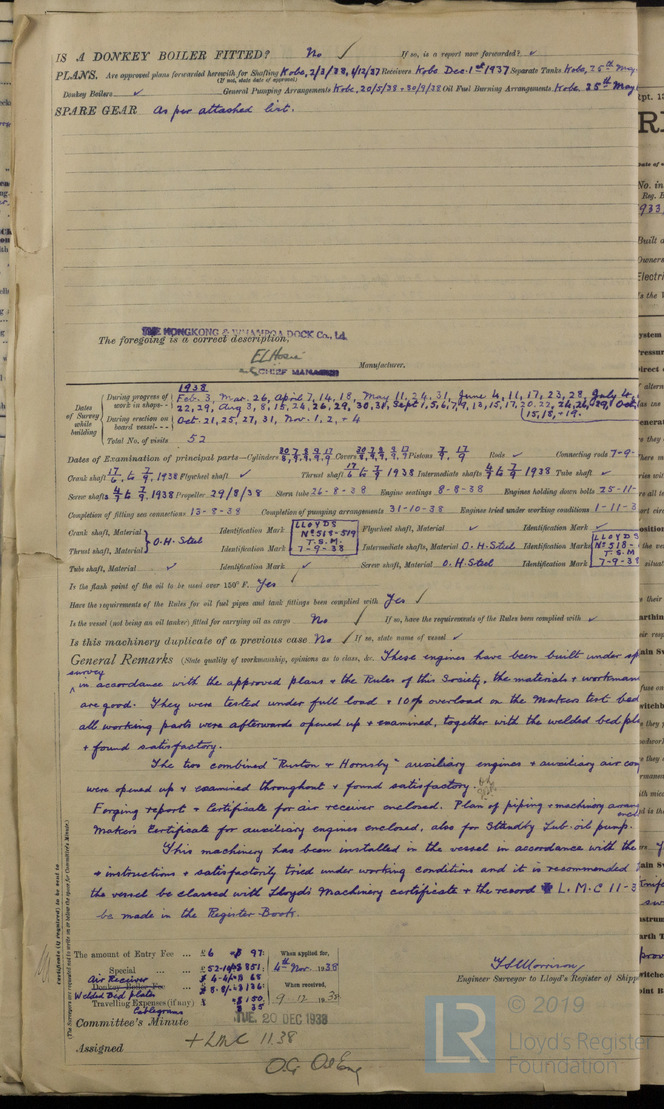 IS A DONKEY BOILER FITTED? No / If so, is a report now forwarded? ✓
PLANS. Are approved plans forwarded herewith for Shafting Kobe, 2/3/38, 1/12/37 Receivers Kobe Dec. 1st 1937 Separate Tanks Kobe, 25th May
(If not, state date of approval)
Donkey Boilers ✓ General Pumping Arrangements Kobe, 20/5/38 + 30/9/38 Oil Fuel Burning Arrangements Kobe. 25th May
SPARE GEAR As per attached list.
THE HONGKONG & WHAMPOA DOCK Co., Ld.
The foregoing is a correct description,
CHIEF MANAGER Manufacturer.
1938
Dates of Survey while building
During progress of work in shops - - Feb. 3, Mar. 26, April 7, 14, 18, May 11, 24, 31, June 4, 11, 17, 23, 28, July 4,
22, 29, Aug 3, 8, 15, 24, 26, 29, 30, 31, Sept 1, 5, 6, 7, 9, 13, 15, 17, 20, 22, 24, 26, 29, Oct.
15, 18, + 19.
During erection on board vessel - - - Oct. 21, 25, 27, 31, Nov. 1, 2, + 4
Total No. of visits 52
Dates of Examination of principal parts—Cylinders Covers Pistons 7/9, 17/9 Rods ✓ Connecting rods 7-9-
Crank shaft 17/6, to 7/9, 1938 Flywheel shaft ✓ Thrust shaft 17/6 to 7/9 1938 Intermediate shafts 4/7 to 7/9 1938 Tube shaft ✓
Screw shafts 4/7 to 7/9. 1938 Propeller 29/8/38 Stern tube 26-8-38 Engine seatings 8-8-38 Engines holding down bolts 25-11-
Completion of fitting sea connections 13-8-38 Completion of pumping arrangements 31-10-38 Engines tried under working conditions 1-11-3
Crank shaft, Material Identification Mark LLOYDS Flywheel shaft, Material ✓ Identification Mark ✓
O.H. Steel No 518-519 LLOYDS
Thrust shaft, Material Identification Mark T.S.M. 7-9-38 Intermediate shafts, Material O.H. Steel Identification Marks No 518-
T.S.M
Tube shaft, Material ✓ Identification Mark ✓ Screw shaft, Material O.H. Steel Identification Mark 7-9-38
Is the flash point of the oil to be used over 150° F. Yes /
Have the requirements of the Rules for oil fuel pipes and tank fittings been complied with Yes /
Is the vessel (not being an oil tanker) fitted for carrying oil as cargo No / If so, have the requirements of the Rules been complied with ✓
Is this machinery duplicate of a previous case No / If so, state name of vessel ✓
General Remarks (State quality of workmanship, opinions as to class, &c. These engines have been built under sp
survey
in accordance with the approved plans + the Rules of this Society, the materials + workman
are good. They were tested under full load + 10% overload on the Makers test bed
all working parts were afterwards opened up + examined, together with the welded bed pla
+ found satisfactory.
The two combined "Ruston + Hornsby" auxiliary engines + auxiliary air com
were opened up + examined throughout + found satisfactory.
Forging report + Certificate for air receiver enclosed. Plan of piping + machinery arran
Makers Certificate for auxiliary engines enclosed, also for Lub. oil pump.
This machinery has been installed in the vessel in accordance with the
+ instructions + satisfactorily tried under working conditions and it is recommended
the vessel be classed with Lloyds Machinery certificate + the record ✠ L.M.C 11-3
be made in the Register Book.
Certificate (if required) to be sent to
(The Surveyors are requested not to write on or below the space for Committee's Minute.)
The amount of Entry Fee ... £6 $ 97: When applied for,
Special ... £52-10 $851: 4th Nov. 1938
Air Receiver
Donkey Boiler Fee ... £4-4 $ 68 When received,
Welded Bed plates £8-8 $136:
Travelling Expenses (if any) £ $150. 9. 12. 1938
Cablegrams $ 35
TSMorrison
Engineer Surveyor to Lloyd's Register of Shipp
Committee's Minute TUE. 20 DEC 1938
Assigned + LMC 11.38
O.G. Oil Eng
© 2019
LR
Lloyd's Register
Foundation